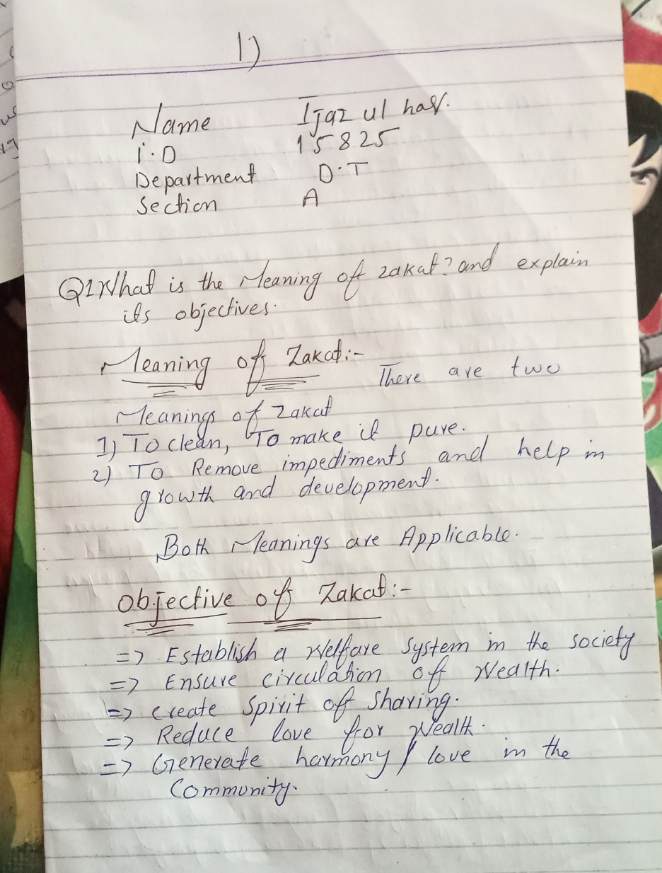 1)
Name Ijaz ul haq.
I.D 15825
Department D.T
Section A
Q1 What is the Meaning of zakat? and explain
its objectives.
Meaning of Zakat:- There are two
Meanings of Zakat
1) To clean, To make it pure.
2) To Remove impediments and help in
growth and development.
Both Meanings are Applicable.
Objective of Zakat:-
=> Establish a Welfare System in the society
=> Ensure circulation of Wealth.
=> Create Spirit of Sharing.
=> Reduce love for Wealth.
=> Generate harmony / love in the
Community.